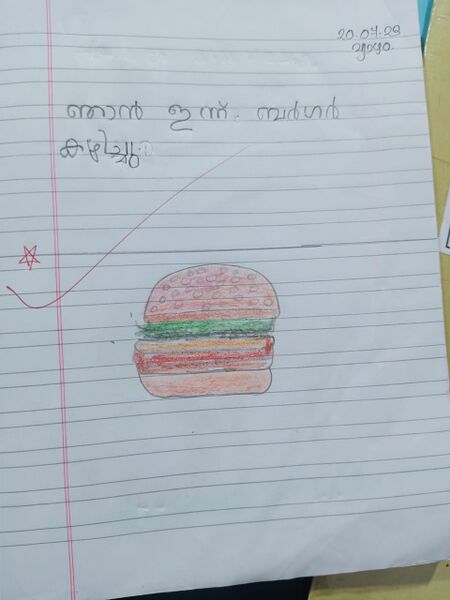 20.07.23
വ്യാഴം.
ഞാൻ ഇന്ന് ബർഗർ
കഴിച്ചു.